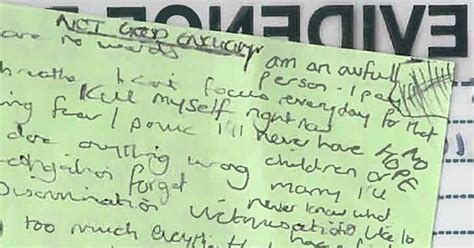 NOT GOOD ENOUGH
are no words
am an awful
person - I pay
everyday for that
can't focus
Kill myself right now
NO
HOPE
fear / panic I'll never have
children or
marry I'll
done anything wrong
never know what
forget
Discrimination Victimisation
too much everything